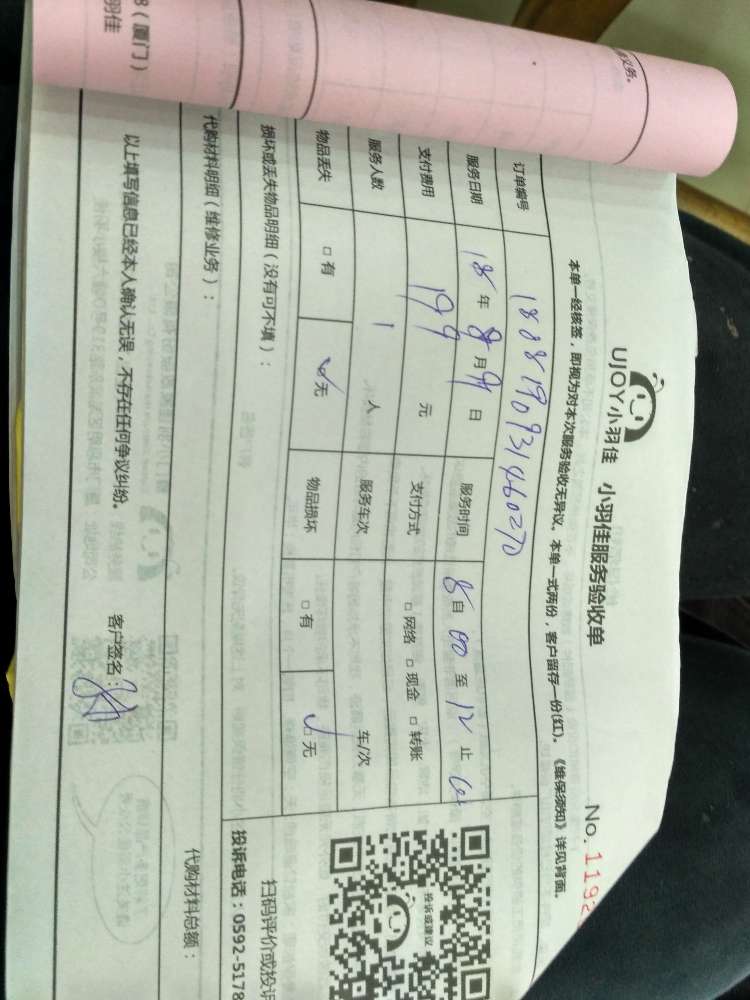 8（厦门）
羽佳
务。
UJOY小羽佳 小羽佳服务验收单
No. 1192
本单一经核签，即视为对本次服务验收无异议。本单一式两份，客户留存一份(红)。《维保须知》详见背面。
订单编号
服务日期 18 年 8 月 9 日 服务时间 8 自 00 至 12 止
支付费用 199 元 支付方式 □网络 □现金 □转账
服务人数 1 人 服务车次 车/次
物品丢失 □有 □无 物品损坏 □有 □无
损坏或丢失物品明细（没有可不填）：
代购材料明细（维修业务）：
代购材料总额：
以上填写信息已经本人确认无误，不存在任何争议纠纷。 客户签名：
投诉或建议
扫码评价或投诉
投诉电话：0592-5178